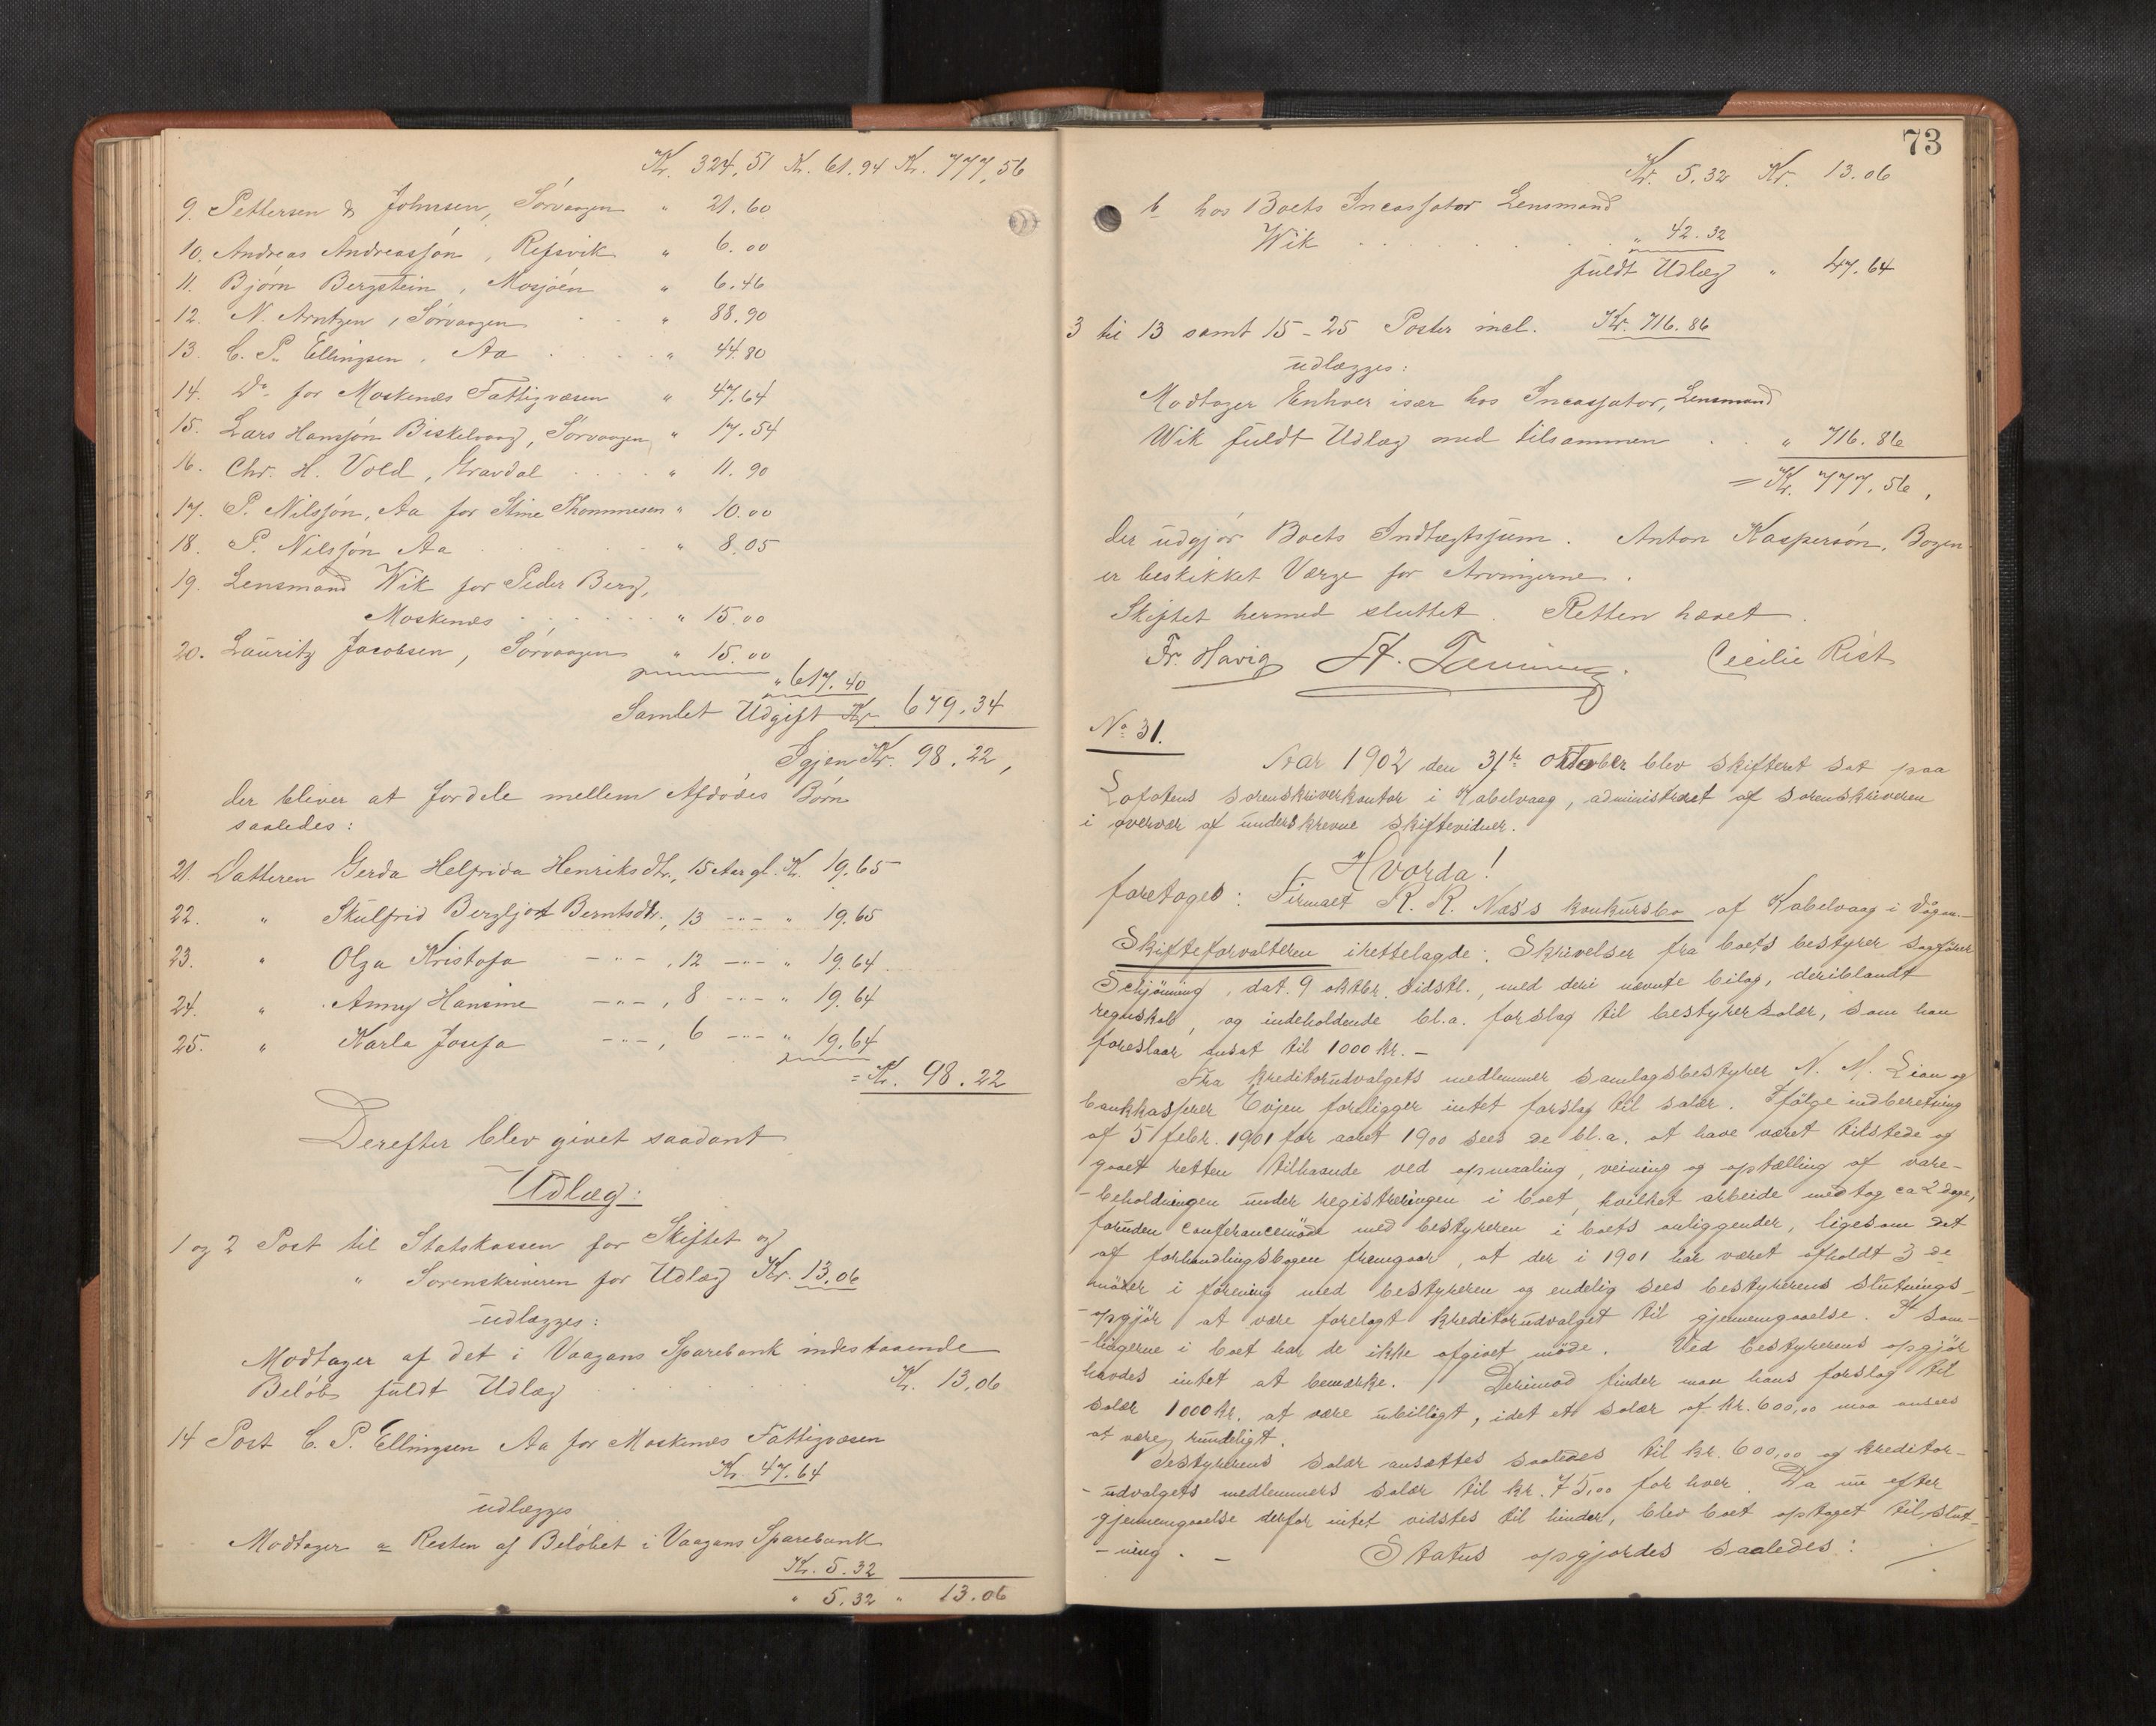 Kr. 324,51 Kr. 61.94 Kr. 777,56
9. Pettersen & Johnsen, Sörvaagen " 21.60
10. Andreas Andreassön, Refsvik " 6.00
11. Björn Bergstein, Mosjöen " 6.46
12. N. Arntzen, Sörvaagen . . " 88.90
13. C. P. Ellingsen, Aa . . . . " 44.80
14. Do for Moskenæs Fattigvæsen " 47.64
15. Lars Hanssön Biskelvaag, Sörvaagen " 17.54
16. Chr. H. Vold, Gravdal . . . . " 11.90
17. P. Nilssön, Aa for Stine Thommesen " 10.00
18. P. Nilssön Aa . . . . . " 8.05
19. Lensmand Wik for Peder Berg,
Moskenæs . . . . . . " 15.00
20. Lauritz Jacobsen, Sörvaagen " 15.00
" 617.40
Samlet Udgift Kr 679.34
Igjen Kr. 98.22,
der bliver at fordele mellem Afdödes Börn
saaledes:
21. Datteren Gerda Helfrida Henriksdtr., 15 Aar gl. Kr. 19.65
22. " Skulfrid Bergljot Berntsdtr., 13 -"- " 19.65
23. " Olga Kristofa -"-, 12 -"- " 19.64
24. " Anny Hansine -"-, 8 -"- " 19.64
25. " Karla Josefa -"-, 6 -"- " 19.64
= Kr. 98.22
Derefter blev givet saadant
Udlæg:
1 og 2 Post til Statskassen for Skiftet og
" Sorenskriveren for Udlæg Kr. 13.06
udlægges:
Modtager af det i Vaagans Sparebank indestaaende
Belöb fuldt Udlæg . . . . Kr. 13,06
14 Post C. P. Ellingsen Aa for Moskenæs Fattigvæsen
Kr. 47.64
udlægges
Modtager a Resten af Belöbet i Vaagans Sparebank
Kr. 5.32
" 5.32 " 13.06
73
Kr. 5.32 Kr. 13.06
b hos Boets Incassator Lensmand
Wik . . . . . . " 42.32
fuldt Udlæg " 47.64
3 til 13 samt 15-25 Poster incl. Kr. 716.86
udlægges:
Modtager Enhver især hos Incassator, Lensmand
Wik fuldt Udlæg med tilsammen . . " 716.86
= Kr. 777,56,
der udgjör Boets Indtægtssum. Anton Kaspersön, Bogen
er beskikket Værge for Arvingerne.
Skiftet hermed sluttet. Retten hævet.
Fr. Havig Cecilie Rist
No 31.
Aar 1902 den 31te oktober blev skifteret sat paa
Lofotens sorenskriverkontor i Kabelvaag, administreret af sorenskriveren
i overvær af underskrevne skiftevidner.
Hvorda!
foretoges: Firmaet R. R. Næss konkursbo af Kabelvaag i Vågan.-
Skifteforvalteren irettelagde: Skrivelser fra boets bestyrer sagförer
Schjöning, dat. 9 oktbr. sidstl., med deri nævnte bilag, deriblandt
regnskab, og indeholdende bl.a. forslag til bestyrersalær, som han
foreslaar ansat til 1000 kr.-
Fra kreditorudvalgets medlemmer samlagsbestyrer N. M. Lian og
bankkasserer Evjen foreligger intet forslag til salær. Ifölge indberetning
af 5 febr. 1901 for aaret 1900 sees de bl.a. at have været tilstede og
gaaet retten tilhaande ved opmaaling, veining og optælling af vare-
-beholdningen under registreringen i boet, hvilket arbeide medtog ca 2 dage,
foruden conferancemöde med bestyreren i boets anliggender, ligesom det
af forhandlingsbogen fremgaar, at der i 1901 har været afholdt 3 de
möder i forening med bestyreren og endelig sees bestyrerens slutnings-
-opgjör at være forelagt kreditorudvalget til gjennemgaaelse. I sam-
-lingerne i boet har de ikke afgivet möde. Ved bestyrerens opgjör
havdes intet at bemærke. Derimod finder man hans forslag til
salær 1000 kr. at være ubilligt, idet et salær af kr. 600,00 maa ansees
at være rundeligt.
Bestyrerens salær ansættes saaledes til kr. 600,00 og kreditor-
-udvalgets medlemmers salær til kr. 75,00 for hver. Da nu efter
gjennemgaaelse derfor intet vidstes til hinder, blev boet optaget til slut-
-ning. - Status opgjordes saaledes: